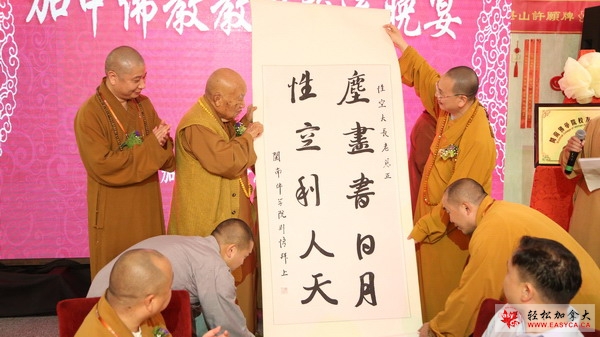 加中佛教教
流晚宴
山許願牌
佳空大長老慈正
塵畫書日月
性空利人天
閩南佛學院則悟拜上
閩南佛學院校友
轻松加拿大
WWW.EASYCA.CA